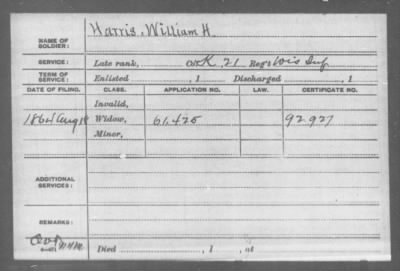 NAME OF SOLDIER: Harris, William H.
SERVICE: Late rank, K, 21 Reg't Wis Inf
TERM OF SERVICE: Enlisted , 1 Discharged , 1
DATE OF FILING. CLASS. APPLICATION NO. LAW. CERTIFICATE NO.
Invalid,
Widow, 61.425 92.927
Minor,
ADDITIONAL SERVICES:
REMARKS:
Died , 1 , at